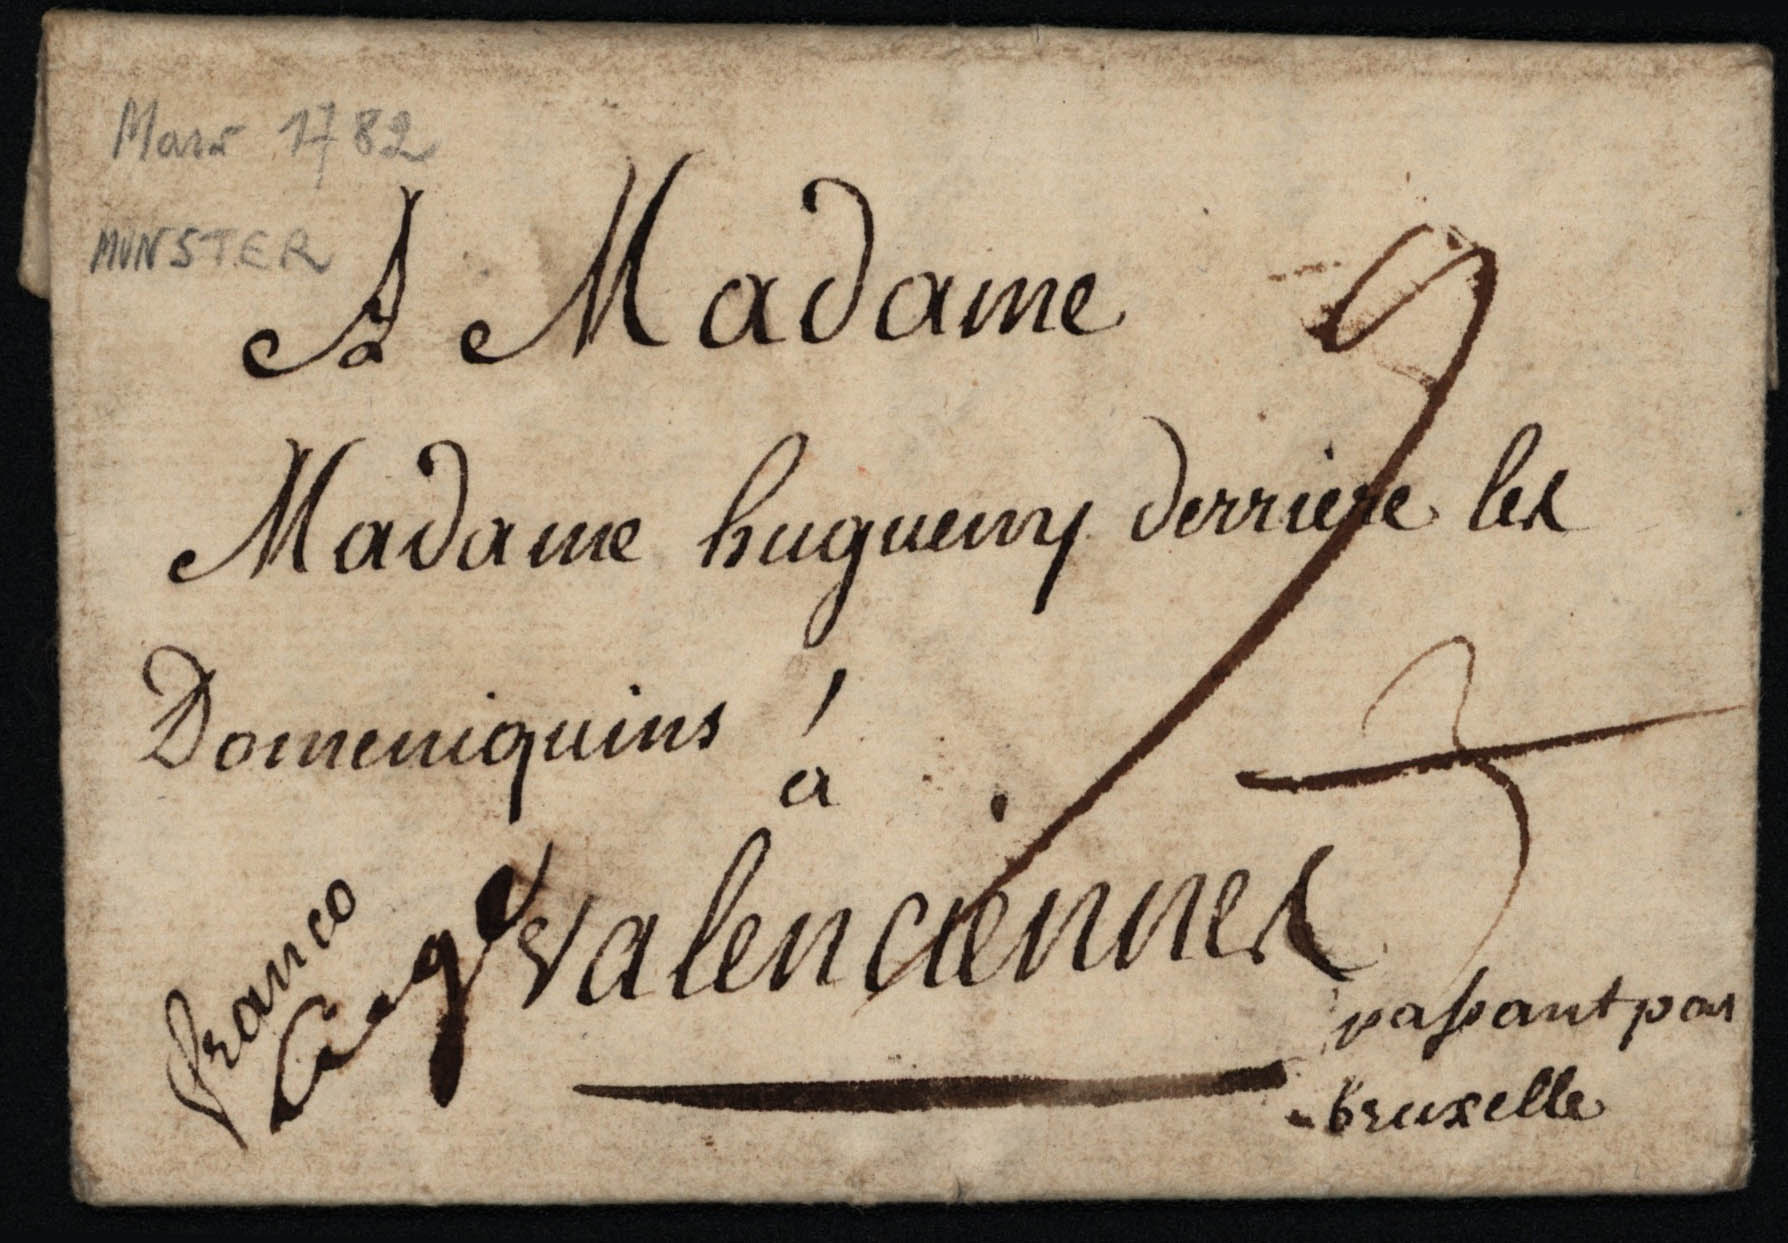 Mars 1782
MUNSTER
A Madame
Madame hugueny derriere les
Domeniquins
à
valenciennes
franco
passant par
bruxelle
3